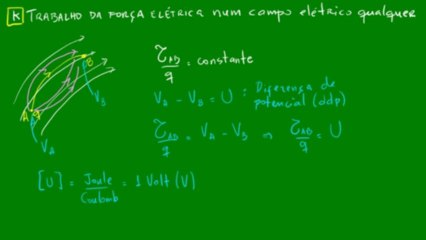 K TRABALHO DA FORÇA ELÉTRICA num campo elétrico qualquer
τAB/q = constante
B
VA - VB = U : Diferença de potencial (ddp)
A
VB
τAB/q = VA - VB → τAB/q = U
VA
[U] = Joule/Coulomb = 1 Volt (V)